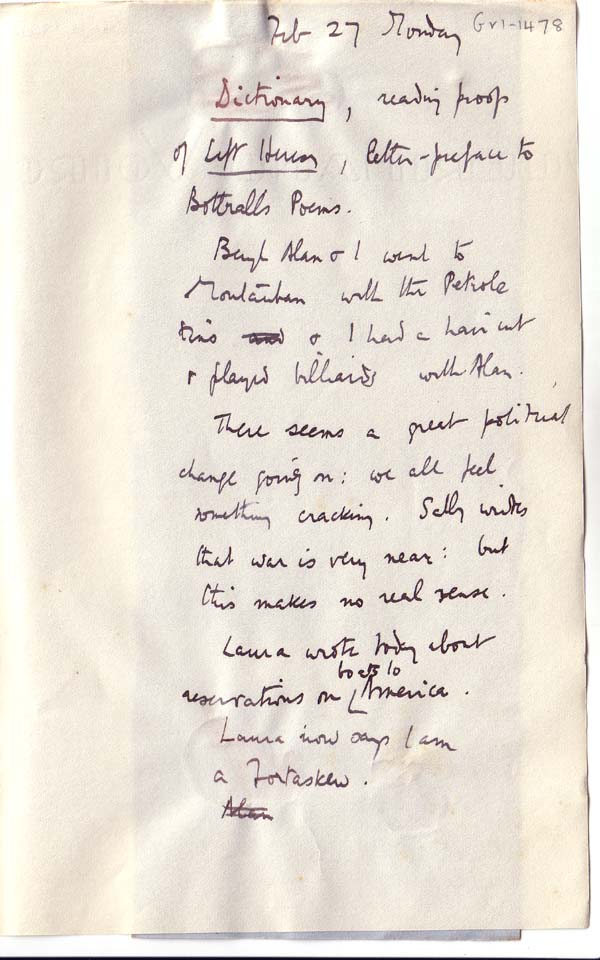 Feb 27 Monday
Gr1-1478
Dictionary, reading proofs
of Left Heresy, letter-preface to
Bottralls Poems.
Beryl Alan & I went to
Montauban with the Petrole
tins and & I had a hair cut
& played billiards with Alan.
There seems a great political
change going on: we all feel
something cracking. Sally writes
that war is very near: but
this makes no real sense.
Laura wrote today about
boats to
reservations on America.
Laura now says I am
a Fortaskew.
Alan